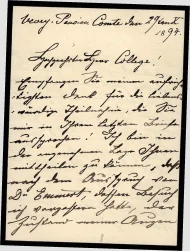 Vevey. Pension Comte den 29 
1894.
Hochgeehrter Herr College!
Empfangen Sie meinen aufrich-
tigsten Dank für die liebens-
würdige Theilnahme, die Sie
mir in Ihrem letzten Briefe
aussprechen! Ich bin in
der angenehmen Lage Ihnen
mittheilen zu können, daß
nach dem Ausspruch von
Dr Emmert dessen Besuch
ich vergessen hatte, der
Zustand meiner Augen